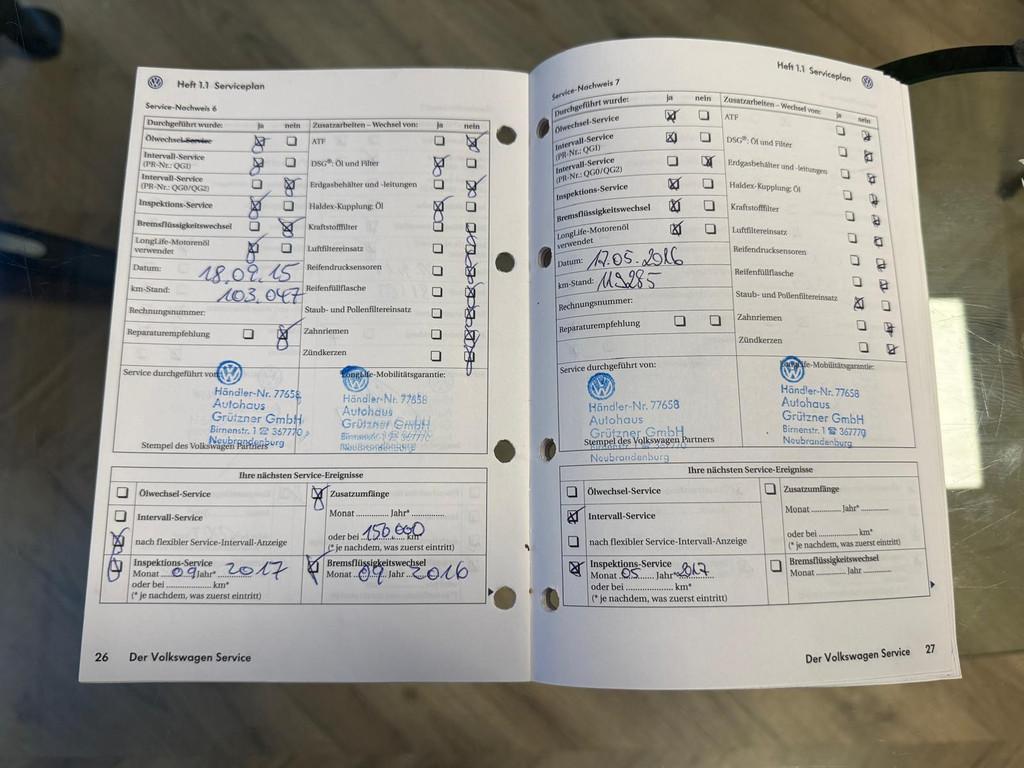 Heft 1.1 Serviceplan
Service-Nachweis 6
Durchgeführt wurde: ja nein
Ölwechsel-Service
Intervall-Service
(PR-Nr.: QG1)
Intervall-Service
(PR-Nr.: QG0/QG2)
Inspektions-Service
Bremsflüssigkeitswechsel
LongLife-Motorenöl
verwendet
Datum: 18.09.15
km-Stand: 103.047
Rechnungsnummer:
Reparaturempfehlung
Zusatzarbeiten – Wechsel von: ja nein
ATF
DSG®: Öl und Filter
Erdgasbehälter und -leitungen
Haldex-Kupplung: Öl
Kraftstofffilter
Luftfiltereinsatz
Reifendrucksensoren
Reifenfüllflasche
Staub- und Pollenfiltereinsatz
Zahnriemen
Zündkerzen
Service durchgeführt von:
Händler-Nr. 77658
Autohaus
Grützner GmbH
Birnenstr. 1 ☎ 367770
Neubrandenburg
Stempel des Volkswagen Partners
LongLife-Mobilitätsgarantie:
Händler-Nr. 77658
Autohaus
Grützner GmbH
Birnenstr. 1 ☎ 367770
Neubrandenburg
Ihre nächsten Service-Ereignisse
Ölwechsel-Service
Intervall-Service
nach flexibler Service-Intervall-Anzeige
Inspektions-Service
Monat 09 Jahr* 2017
oder bei ............ km*
(* je nachdem, was zuerst eintritt)
Zusatzumfänge
Monat ............ Jahr* ............
oder bei 150.000 km*
(* je nachdem, was zuerst eintritt)
Bremsflüssigkeitswechsel
Monat 09 Jahr 2016
26 Der Volkswagen Service
Heft 1.1 Serviceplan
Service-Nachweis 7
Durchgeführt wurde: ja nein
Ölwechsel-Service
Intervall-Service
(PR-Nr.: QG1)
Intervall-Service
(PR-Nr.: QG0/QG2)
Inspektions-Service
Bremsflüssigkeitswechsel
LongLife-Motorenöl
verwendet
Datum: 17.05.2016
km-Stand: 119285
Rechnungsnummer:
Reparaturempfehlung
Zusatzarbeiten – Wechsel von: ja nein
ATF
DSG®: Öl und Filter
Erdgasbehälter und -leitungen
Haldex-Kupplung: Öl
Kraftstofffilter
Luftfiltereinsatz
Reifendrucksensoren
Reifenfüllflasche
Staub- und Pollenfiltereinsatz
Zahnriemen
Zündkerzen
Service durchgeführt von:
Händler-Nr. 77658
Autohaus
Grützner GmbH
Stempel des Volkswagen Partners
Neubrandenburg
LongLife-Mobilitätsgarantie:
Händler-Nr. 77658
Autohaus
Grützner GmbH
Birnenstr. 1 ☎ 367770
Neubrandenburg
Ihre nächsten Service-Ereignisse
Ölwechsel-Service
Intervall-Service
nach flexibler Service-Intervall-Anzeige
Inspektions-Service
Monat 05 Jahr 2017
oder bei ............ km*
(* je nachdem, was zuerst eintritt)
Zusatzumfänge
Monat ............ Jahr* ............
oder bei ............ km*
(* je nachdem, was zuerst eintritt)
Bremsflüssigkeitswechsel
Monat ............ Jahr ............
Der Volkswagen Service 27